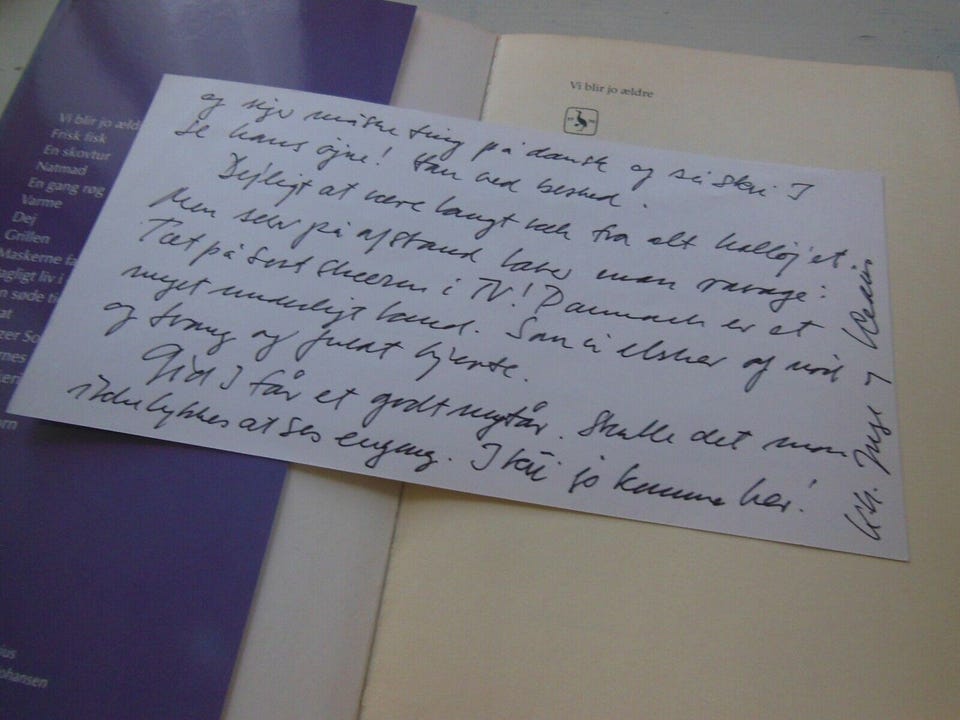 Vi blir jo æld
Frisk fisk
En skovtur
Natmad
En gang røg
Varme
Dej
Grillen
Maskerne fa
agligt liv i
n søde ti
at
zer So
rnes
keri
rn
ius
ohansen
Vi blir jo ældre
og sige måske ting på dansk og så sker. I
se hans øjne! Han ved besked.
Dejligt at være langt væk fra alt halløjet.
Men selv på afstand laver man ravage:
Tæt på Scheern i TV! Danmark er et
meget underligt land. Som vi elsker af nød
og trang og fuldt hjerte.
Gid I får et godt nytår. Skulle det mon
ikke lykkes at ses engang. I kan jo komme her!
Kh. Inge